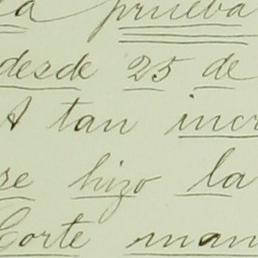 la prueba
desde 25 de
A tan incr
se hizo la
Corte man